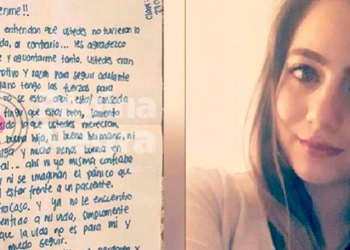 enme!!
entiendan que ustedes no tuvieron la
da, al contrario... les agradezco
y aguantarme tanto, Ustedes eran
motivo y razón para seguir adelante
no tengo las fuerzas para
estar aquí, estoy cansada
fingir que estoy bien, lamento
da lo que ustedes merecían,
buena hija, ni buena hermana, ni
amiga y mucho menos buena en
al... ahí ni yo misma confiaba
y ni se imaginan el pánico que
estar frente a un paciente.
fracaso. Y ya no le encuentro
sentido a mi vida, simplemente
que la vida no es para mí y
puedo seguir.